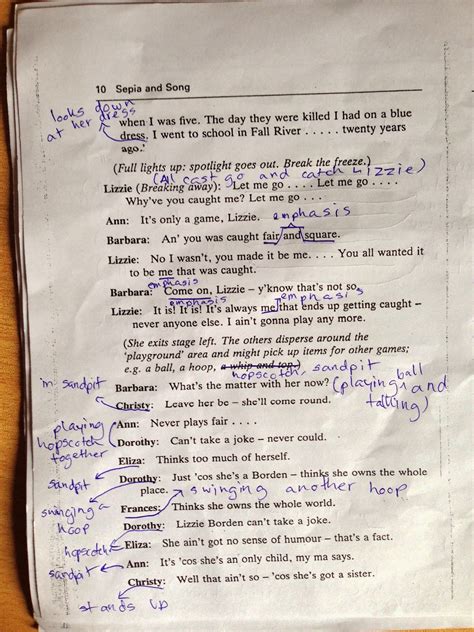 10 Sepia and Song
looks down
at her dress
when I was five. The day they were killed I had on a blue
dress. I went to school in Fall River . . . . . twenty years
ago.'
(Full lights up: spotlight goes out. Break the freeze.)
(All cast go and catch Lizzie)
Lizzie (Breaking away): Let me go . . . . Let me go . . . .
Why've you caught me? Let me go . . . .
Ann: It's only a game, Lizzie.
emphasis
Barbara: An' you was caught fair and square.
Lizzie: No I wasn't, you made it be me. . . . You all wanted it
to be me that was caught.
emphasis
Barbara: Come on, Lizzie – y'know that's not so.
emphasis emphasis
Lizzie: It is! It is! It's always me that ends up getting caught –
never anyone else. I ain't gonna play any more.
(She exits stage left. The others disperse around the
'playground' area and might pick up items for other games;
e.g. a ball, a hoop, a whip and top.)
hopscotch, sandpit ball
in sandpit
Barbara: What's the matter with her now?
(playing and
talking)
Christy: Leave her be – she'll come round.
playing
hopscotch
together
Ann: Never plays fair . . . .
Dorothy: Can't take a joke – never could.
Eliza: Thinks too much of herself.
sandpit
Dorothy: Just 'cos she's a Borden – thinks she owns the whole
place.
swinging another hoop
swinging a
hoop
Frances: Thinks she owns the whole world.
Dorothy: Lizzie Borden can't take a joke.
hopscotch
Eliza: She ain't got no sense of humour – that's a fact.
sandpit
Ann: It's 'cos she's an only child, my ma says.
Christy: Well that ain't so – 'cos she's got a sister.
stands up